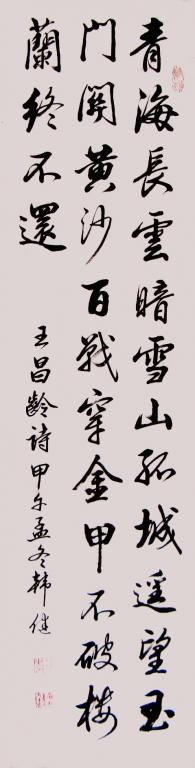 青海長雲暗雪山孤城遥望玉
門関黄沙百戰穿金甲不破楼
蘭終不還
王昌齡詩甲午孟冬韩